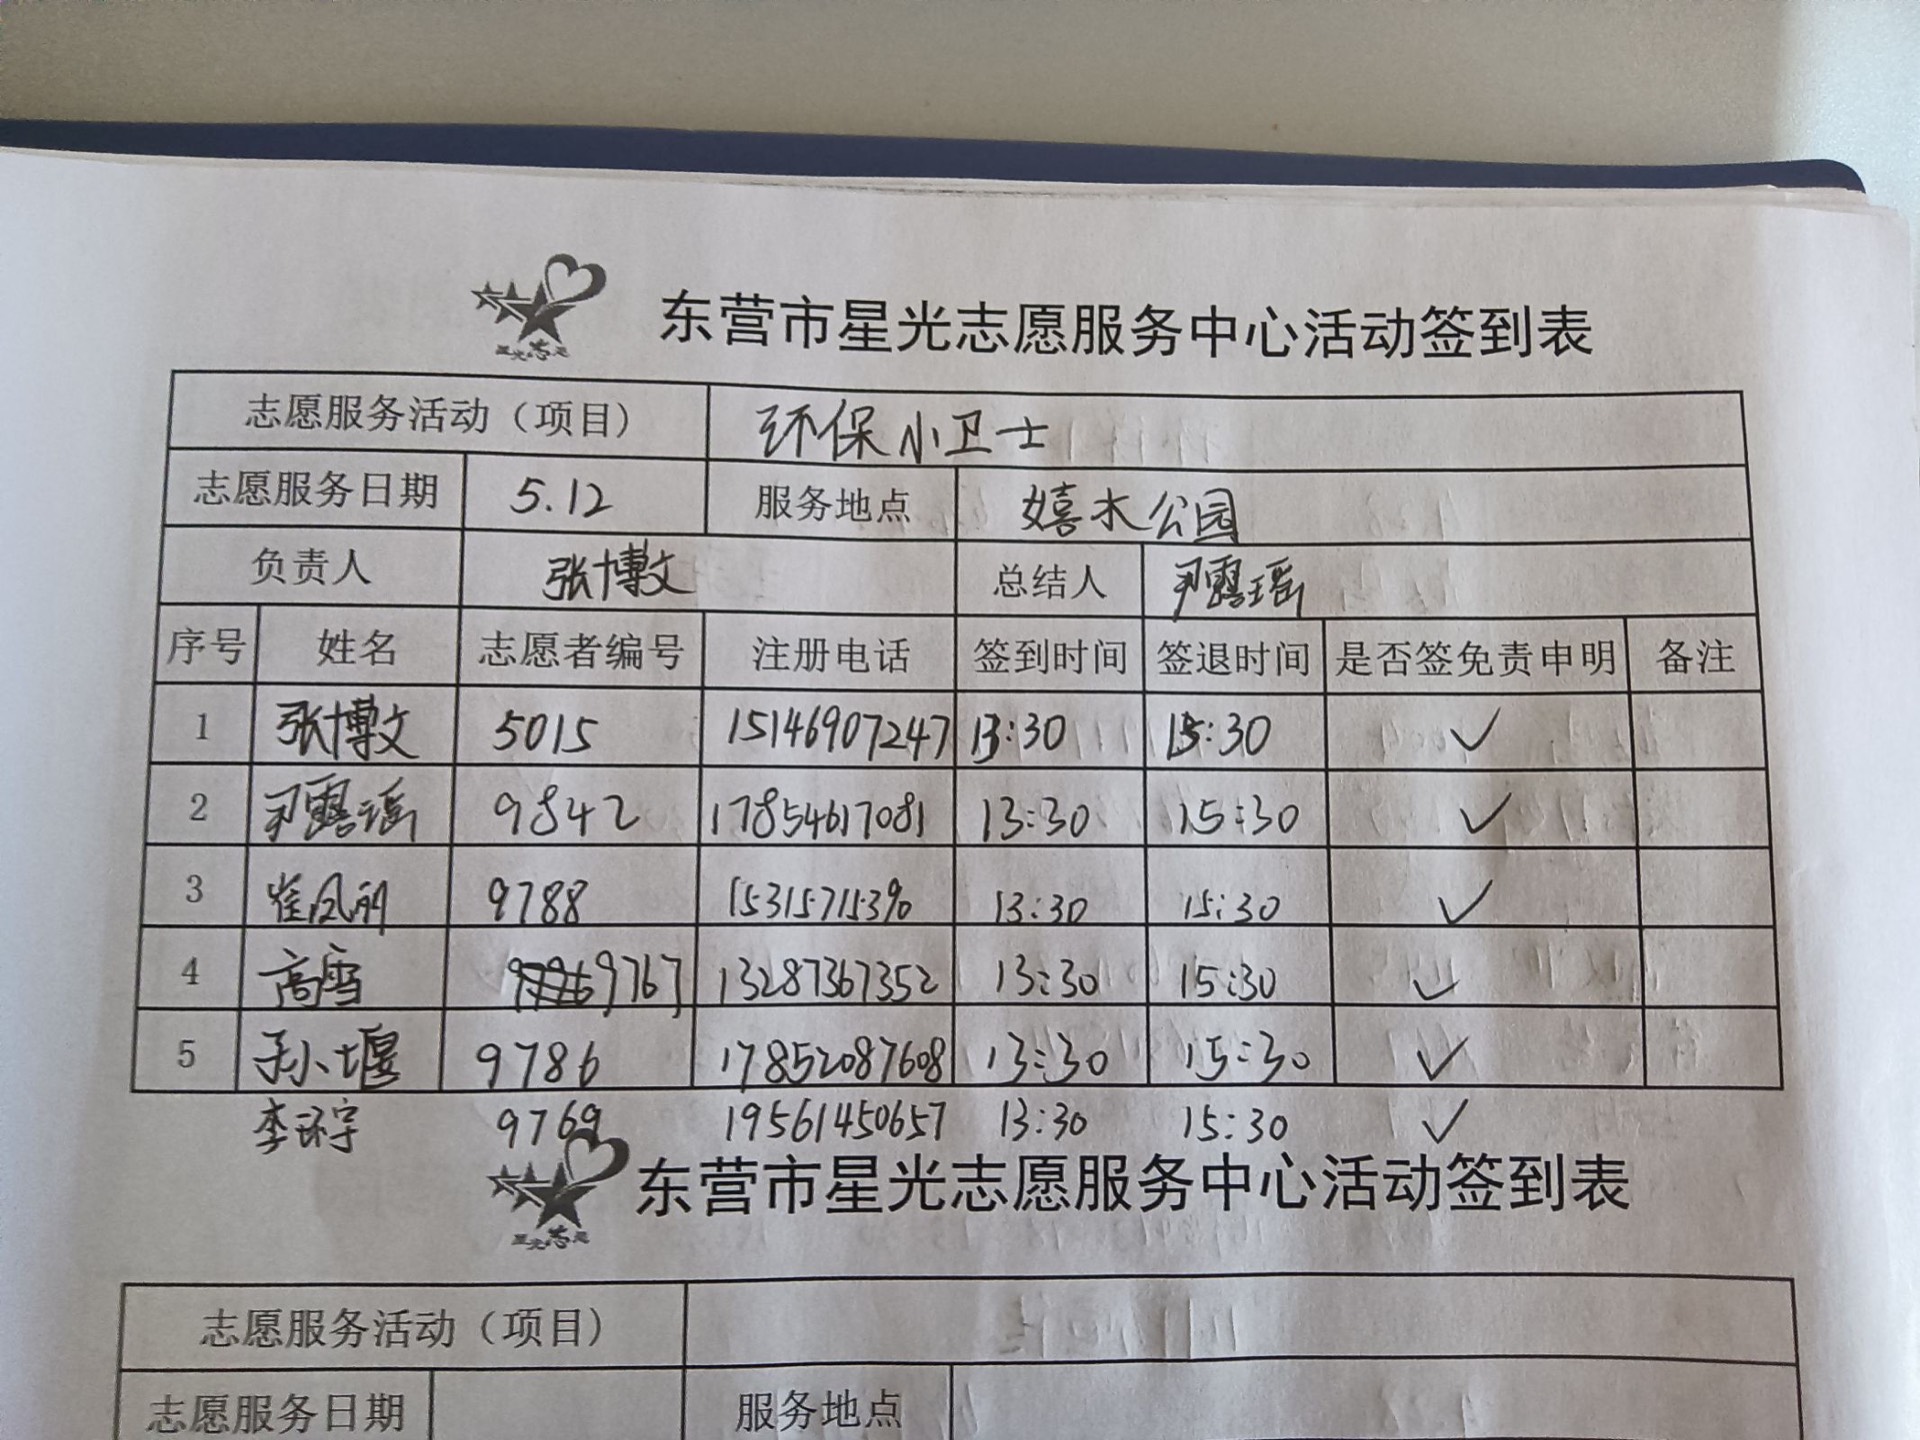 星光志愿
东营市星光志愿服务中心活动签到表
志愿服务活动（项目） 环保小卫士
志愿服务日期 5.12 服务地点 嬉水公园
负责人 张博文 总结人 尹露瑶
序号 姓名 志愿者编号 注册电话 签到时间 签退时间 是否签免责申明 备注
1 张博文 5015 15146907247 13:30 15:30 ✓
2 尹露瑶 9842 17854617081 13:30 15:30 ✓
3 崔凤 9788 15315715390 13:30 15:30 ✓
4 高雪 9767 13287367352 13:30 15:30 ✓
5 孙小堰 9786 17852087608 13:30 15:30 ✓
李环宇 9769 19561450657 13:30 15:30 ✓
星光志愿
东营市星光志愿服务中心活动签到表
志愿服务活动（项目）
志愿服务日期 服务地点